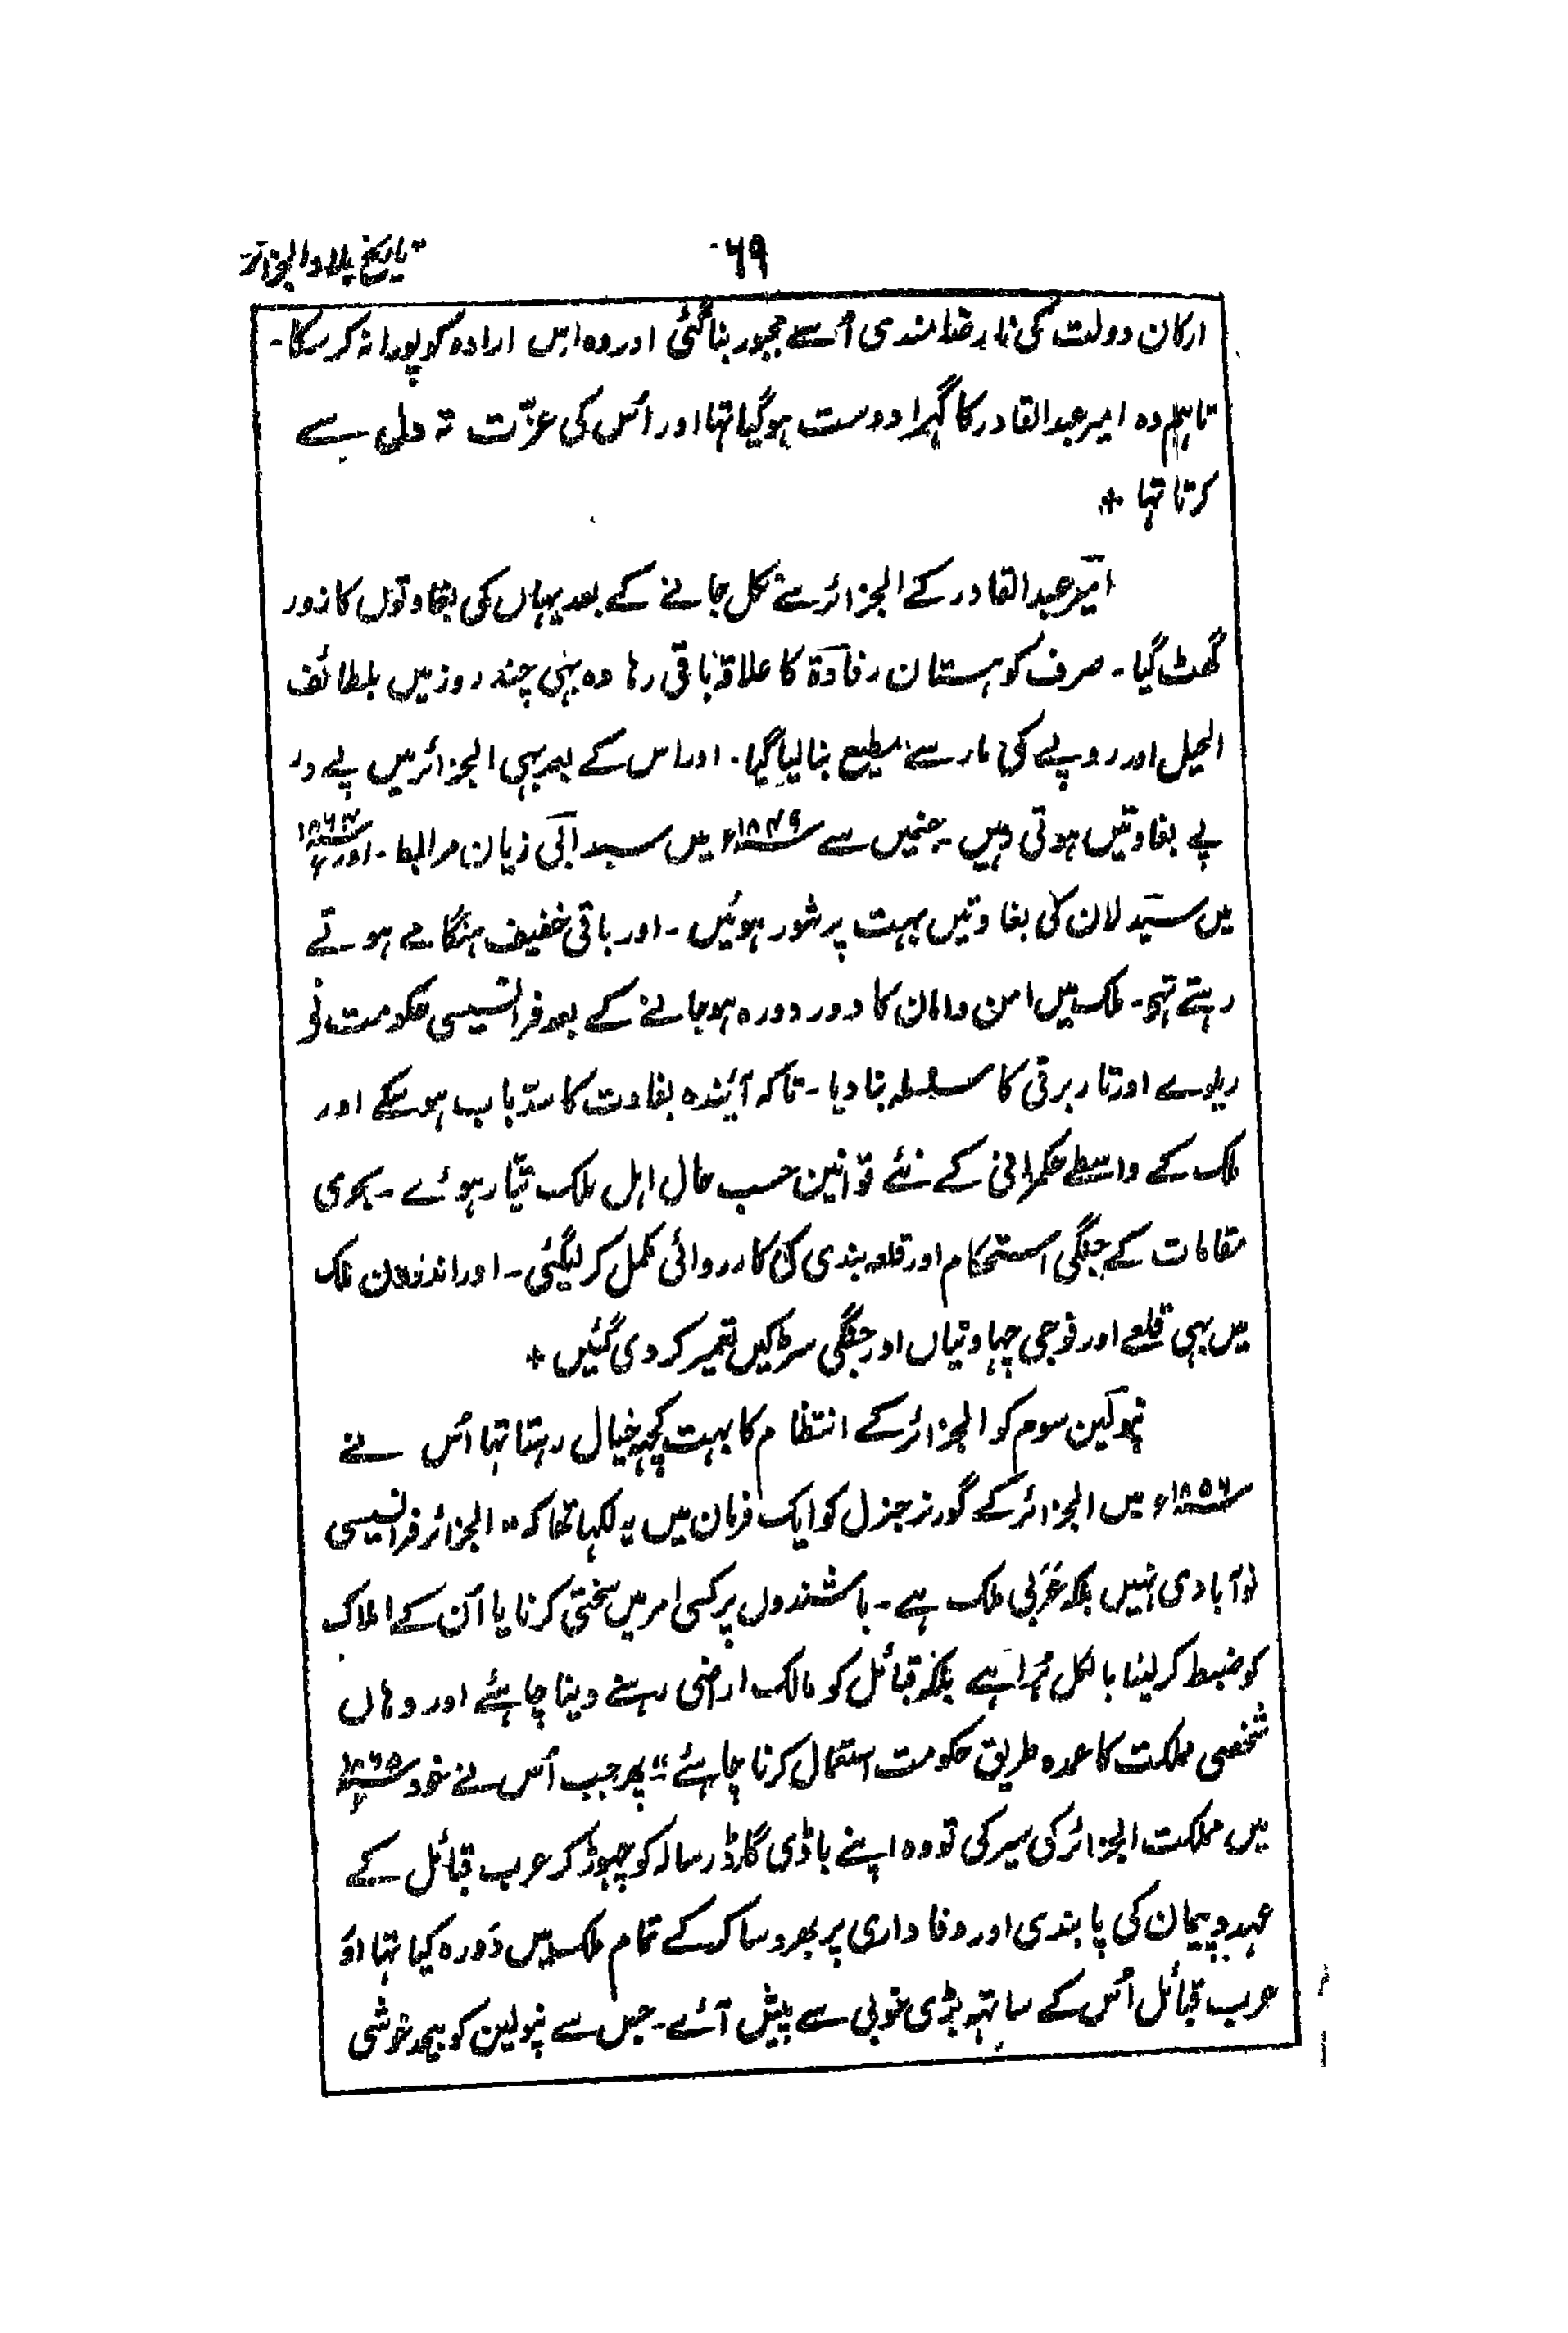 ۶۹
تاریخ بلاد الجزائر
ارکان دولت کی نارضامندی اُسے مجبور بنا گئی اور وہ اس ارادہ کو پورا نہ کر سکا۔
تاہم وہ امیر عبدالقادر کا گہرا دوست ہو گیا تہا اور اُس کی عزّت تہ دل سے
کرتا تہا *
امیر عبدالقادر کے الجزائر سے نکل جانے کے بعد یہاں کی بغاوتوں کا زور
گھٹ گیا۔ صرف کوہستان رفادۃ کا علاقہ باقی رہا وہ بہی چند روز میں بلطائف
الحیل اور روپے کی مار سے مطیع بنا لیا گیا۔ اور اس کے بعد بہی الجزائر میں پے در
پے بغاوتیں ہوتی رہیں۔ جنمیں سے ۱۸۴۹ء میں سید ابی زیان مرابط۔ اور ۱۸۶۴ء
میں سید لان کی بغاوتیں بہت پر شور ہوئیں۔ اور باقی خفیف ہنگامے ہوتے
رہتے تہے۔ ملک میں امن و امان کا دور دورہ ہو جانے کے بعد فرانسیسی حکومت نے
ریلوے اور تار برقی کا سلسلہ بنا دیا۔ تاکہ آئیندہ بغاوت کا سدّ باب ہو سکے اور
ملک کے واسطے حکمرانی کے نئے قوانین حسب حال اہل ملک تیّار ہوئے۔ بحری
مقامات کے جنگی استحکام اور قلعہ بندی کی کارروائی مکمل کر لیگئی۔ اور اندرون ملک
میں بہی قلعے اور فوجی چہاونیاں اور جنگی سڑکیں تعمیر کر دی گئیں *
نپولین سوم کو الجزائر کے انتظام کا بہت کچہہ خیال رہتا تہا اُس نے
۱۸۵۶ء میں الجزائر کے گورنر جنرل کو ایک فرمان میں یہ لکہا تھا کہ "الجزائر فرانسیسی
نو آبادی نہیں بلکہ عَرَبی ملک ہے۔ باشندوں پر کسی امر میں سختی کرنا یا اُن کے املاک
کو ضبط کر لینا بالکل بُرا ہے بلکہ قبائل کو مالک ارضی رہنے دینا چاہئے اور وہاں
شخصی مملکت کا عمدہ طریق حکومت استعمال کرنا چاہئے" پھر جب اُس نے خود ۱۸۶۵ء
میں مملکت الجزائر کی سیر کی تو وہ اپنے باڈی گارڈ رسالہ کو چہوڑ کر عرب قبائل کے
عہد و پیمان کی پابندی اور وفاداری پر بھروسا کر کے تمام ملک میں دَورہ کیا تہا اور
عرب قبائل اُس کے ساتہہ بڑی خوبی سے پیش آئے۔ جس سے نپولین کو بیحد خوشی